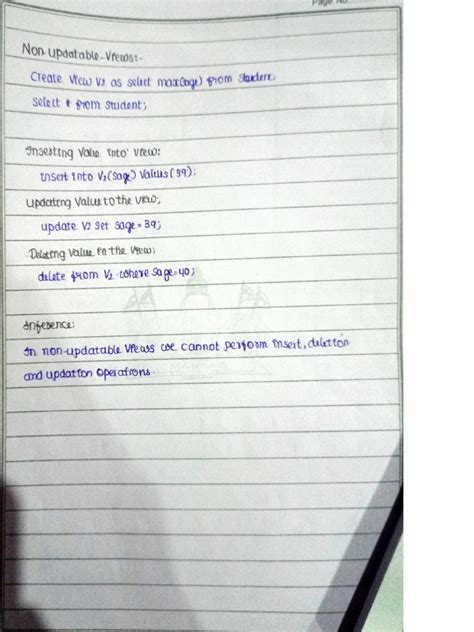 Page No.
Non-updatable-Views:-
Create view V2 as select max(sage) from Student.
select * from student;
Inserting Value into view:
insert into V2(sage) values(39);
updating Value to the view;
update V2 set sage=39;
Deleting Value in the view;
delete from V2 where sage=40;
Inference:
In non-updatable views we cannot perform insert, deletion
and updation operations.